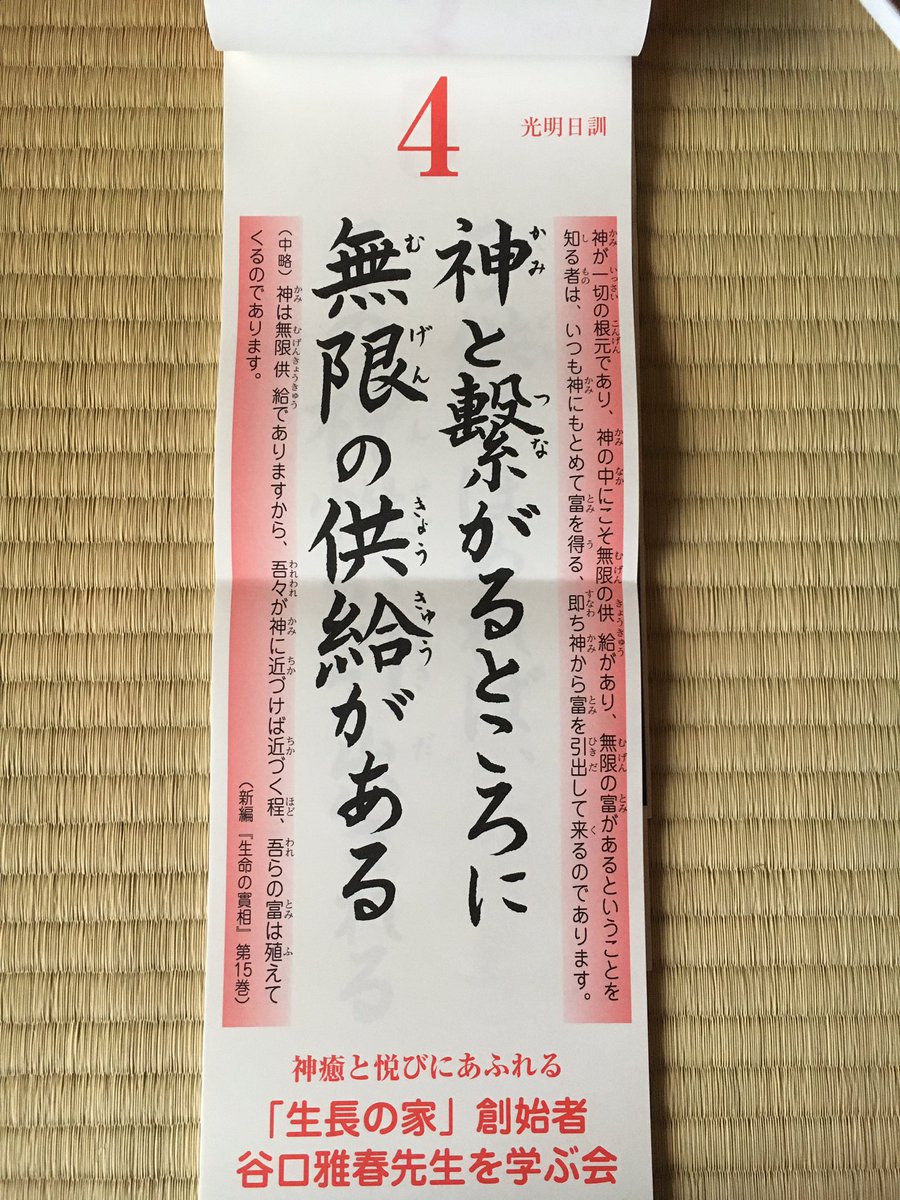 4
光明日訓
神が一切の根元であり、神の中にこそ無限の供給があり、無限の富があるということを
知る者は、いつも神にもとめて富を得る、即ち神から富を引出して来るのであります。
神と繋がるところに
無限の供給がある
（中略）神は無限供給でありますから、吾々が神に近づけば近づく程、吾らの富は殖えて
くるのであります。
（新編『生命の實相』第15巻）
神癒と悦びにあふれる
「生長の家」創始者
谷口雅春先生を学ぶ会